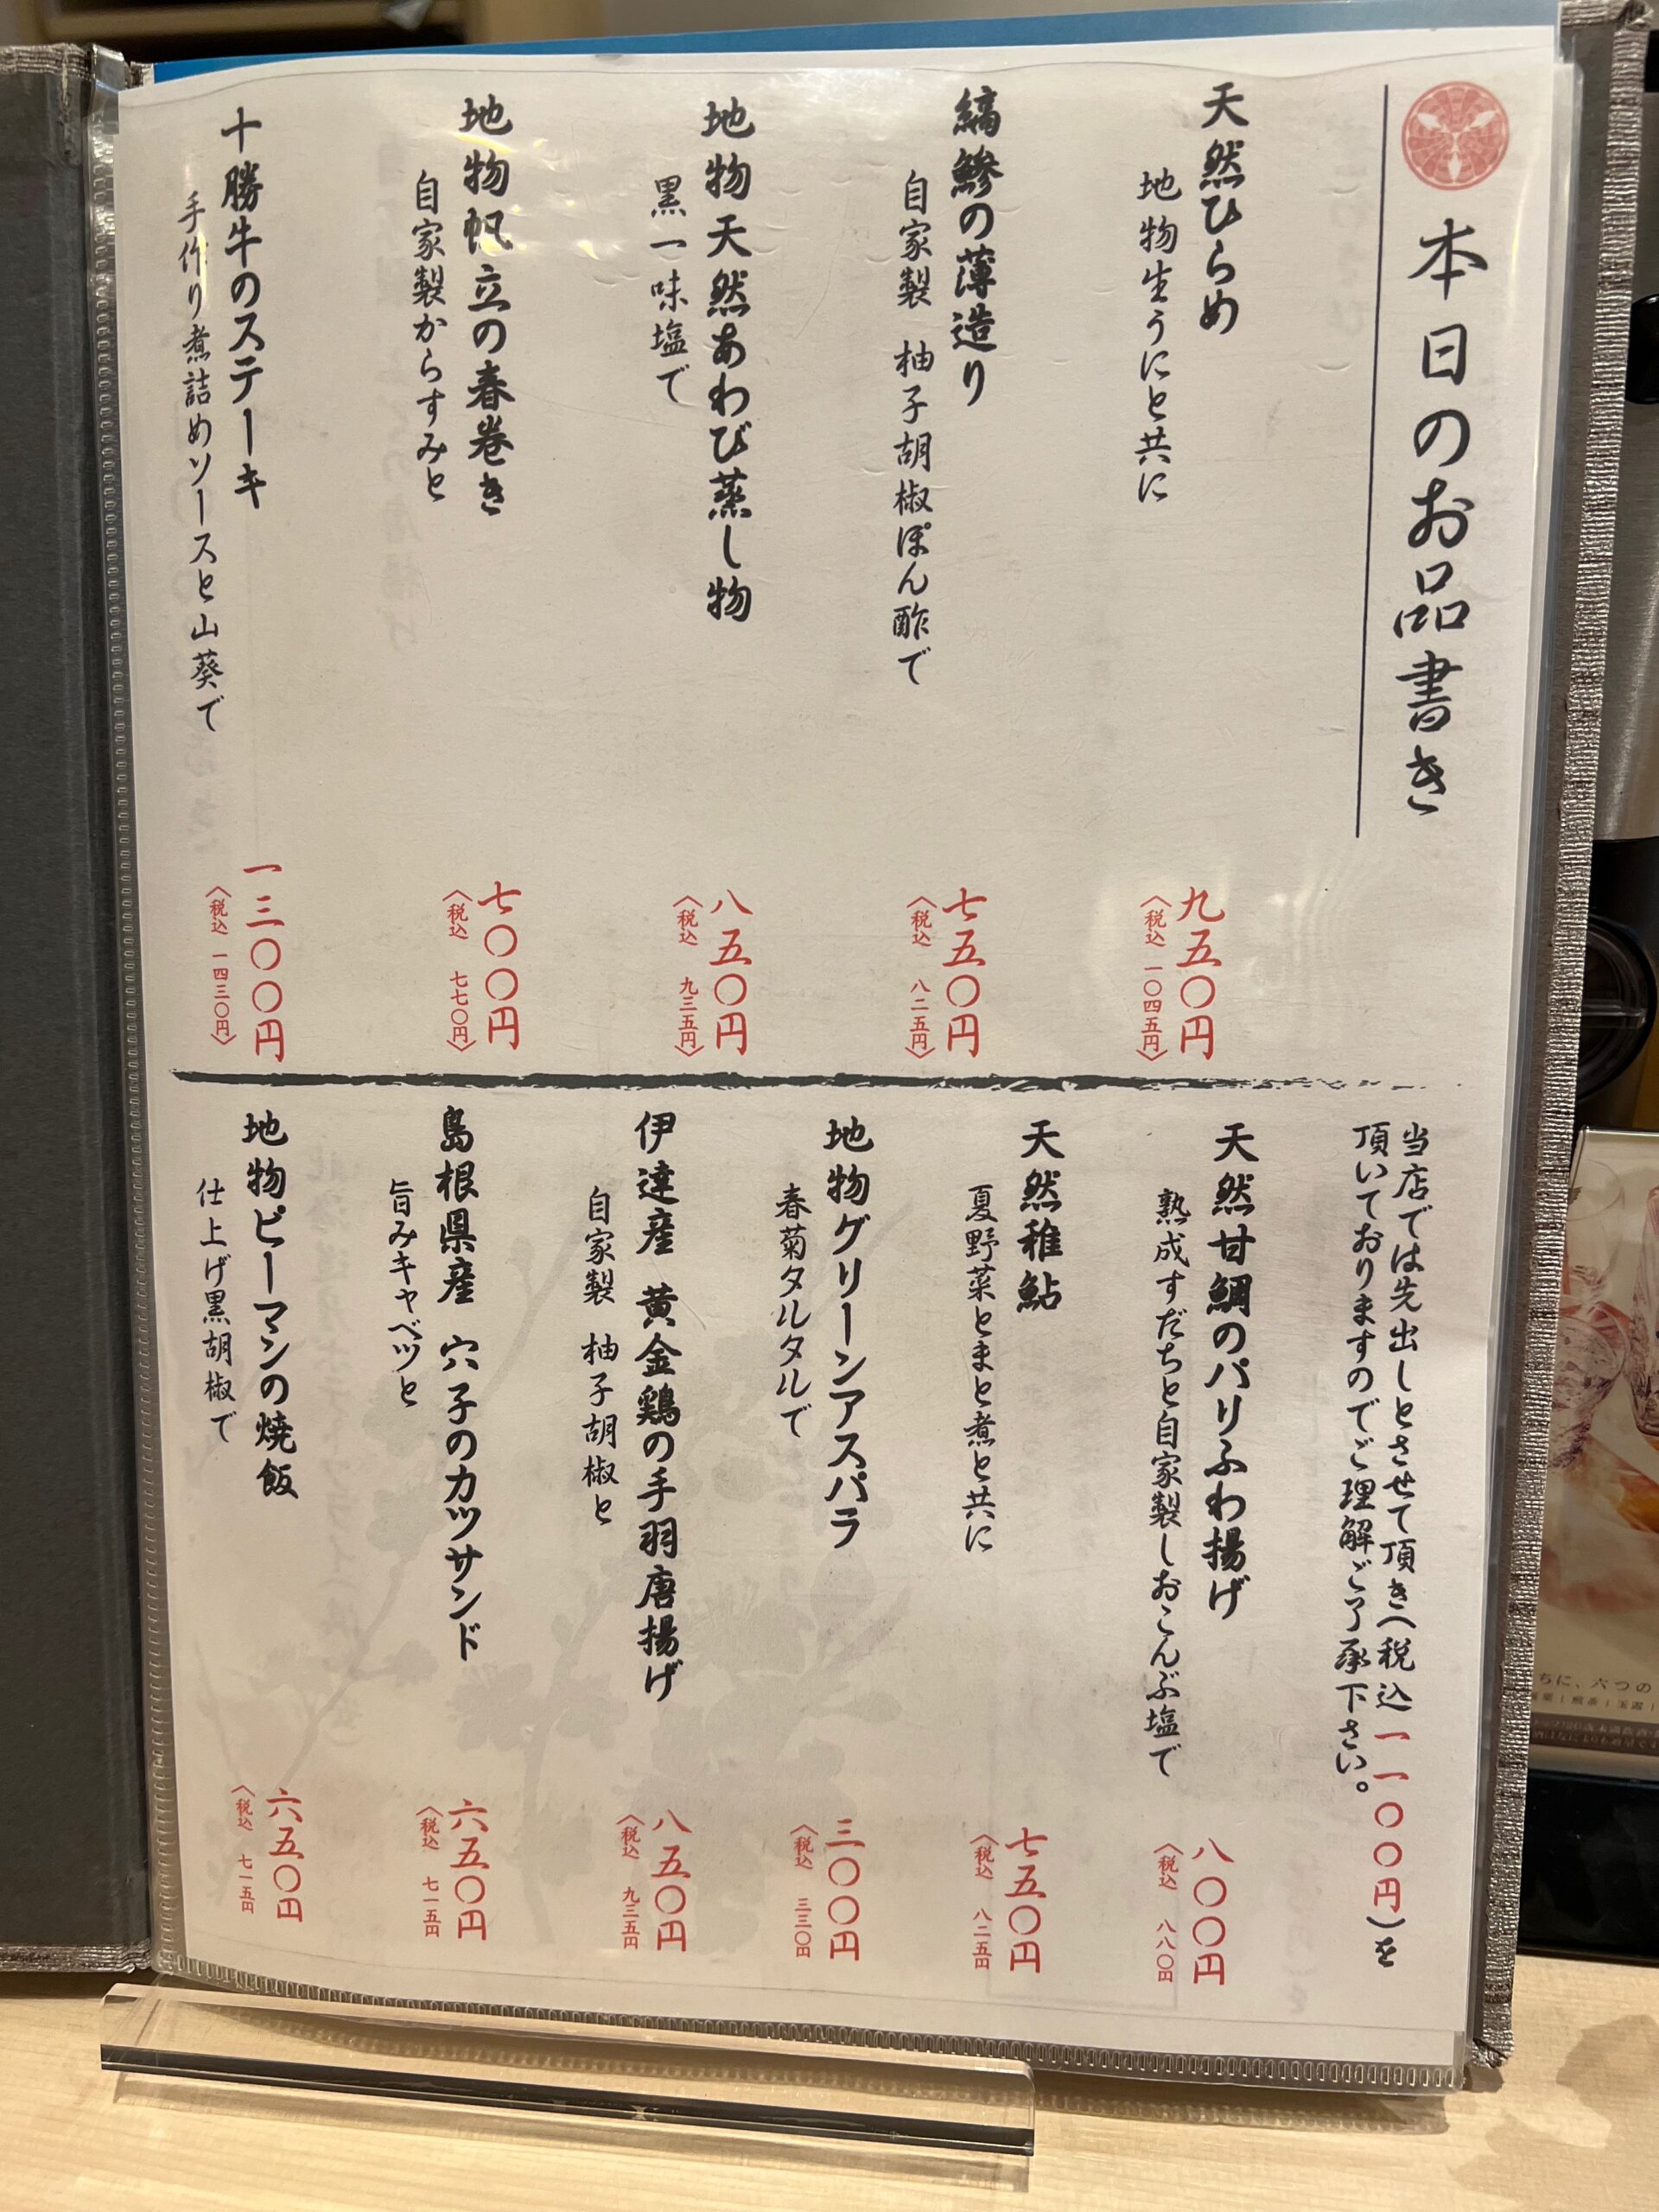 本日のお品書き
天然ひらめ
地物生うにと共に
九五〇円
〈税込 一〇四五円〉
縞鯵の薄造り
自家製 柚子胡椒ぽん酢で
七五〇円
〈税込 八二五円〉
地物天然あわび蒸し物
黒一味塩で
八五〇円
〈税込 九三五円〉
地物帆立の春巻き
自家製からすみと
七〇〇円
〈税込 七七〇円〉
十勝牛のステーキ
手作り煮詰めソースと山葵で
一三〇〇円
〈税込 一四三〇円〉
当店では先出しとさせて頂き(税込一一〇〇円)を
頂いておりますのでご理解ご了承下さい。
天然甘鯛のパリふわ揚げ
熟成すだちと自家製しおこんぶ塩で
八〇〇円
〈税込 八八〇円
天然稚鮎
夏野菜とまと煮と共に
七五〇円
〈税込 八二五円
地物グリーンアスパラ
春菊タルタルで
三〇〇円
〈税込 三三〇円
伊達産 黄金鶏の手羽唐揚げ
自家製 柚子胡椒と
八五〇円
〈税込 九三五円
島根県産 穴子のカツサンド
旨みキャベツと
六五〇円
〈税込 七一五円
地物ピーマンの焼飯
仕上げ黒胡椒で
六五〇円
〈税込 七一五円
ちに、六つの